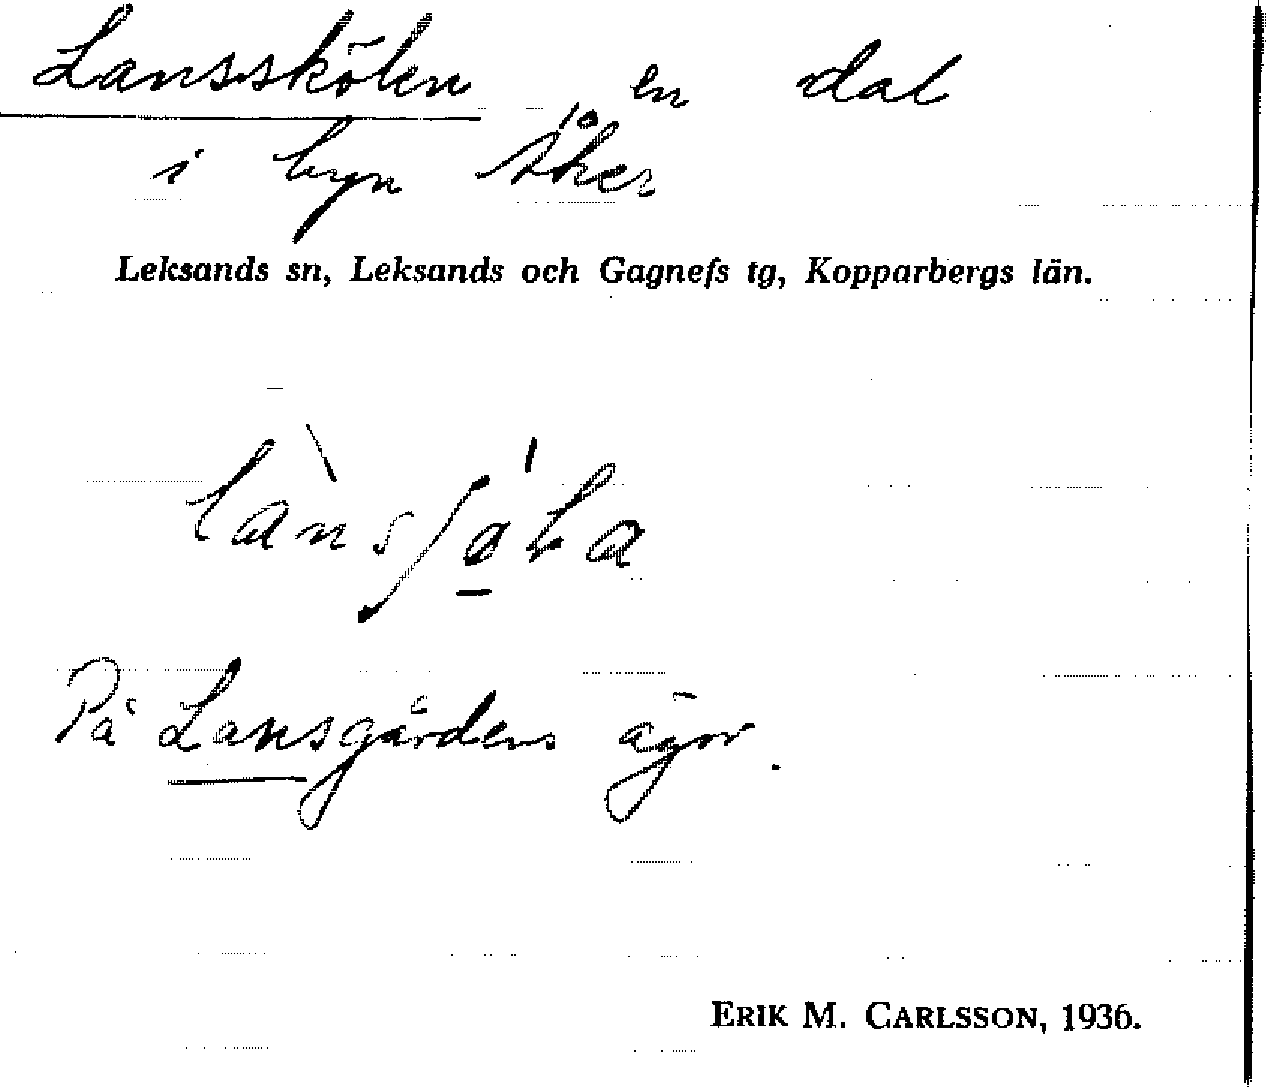 Lansskölen en dal
i byn Åker
Leksands sn, Leksands och Gagnefs tg, Kopparbergs län.
På Lansgårdens ägor.
ERIK M. CARLSSON, 1936.